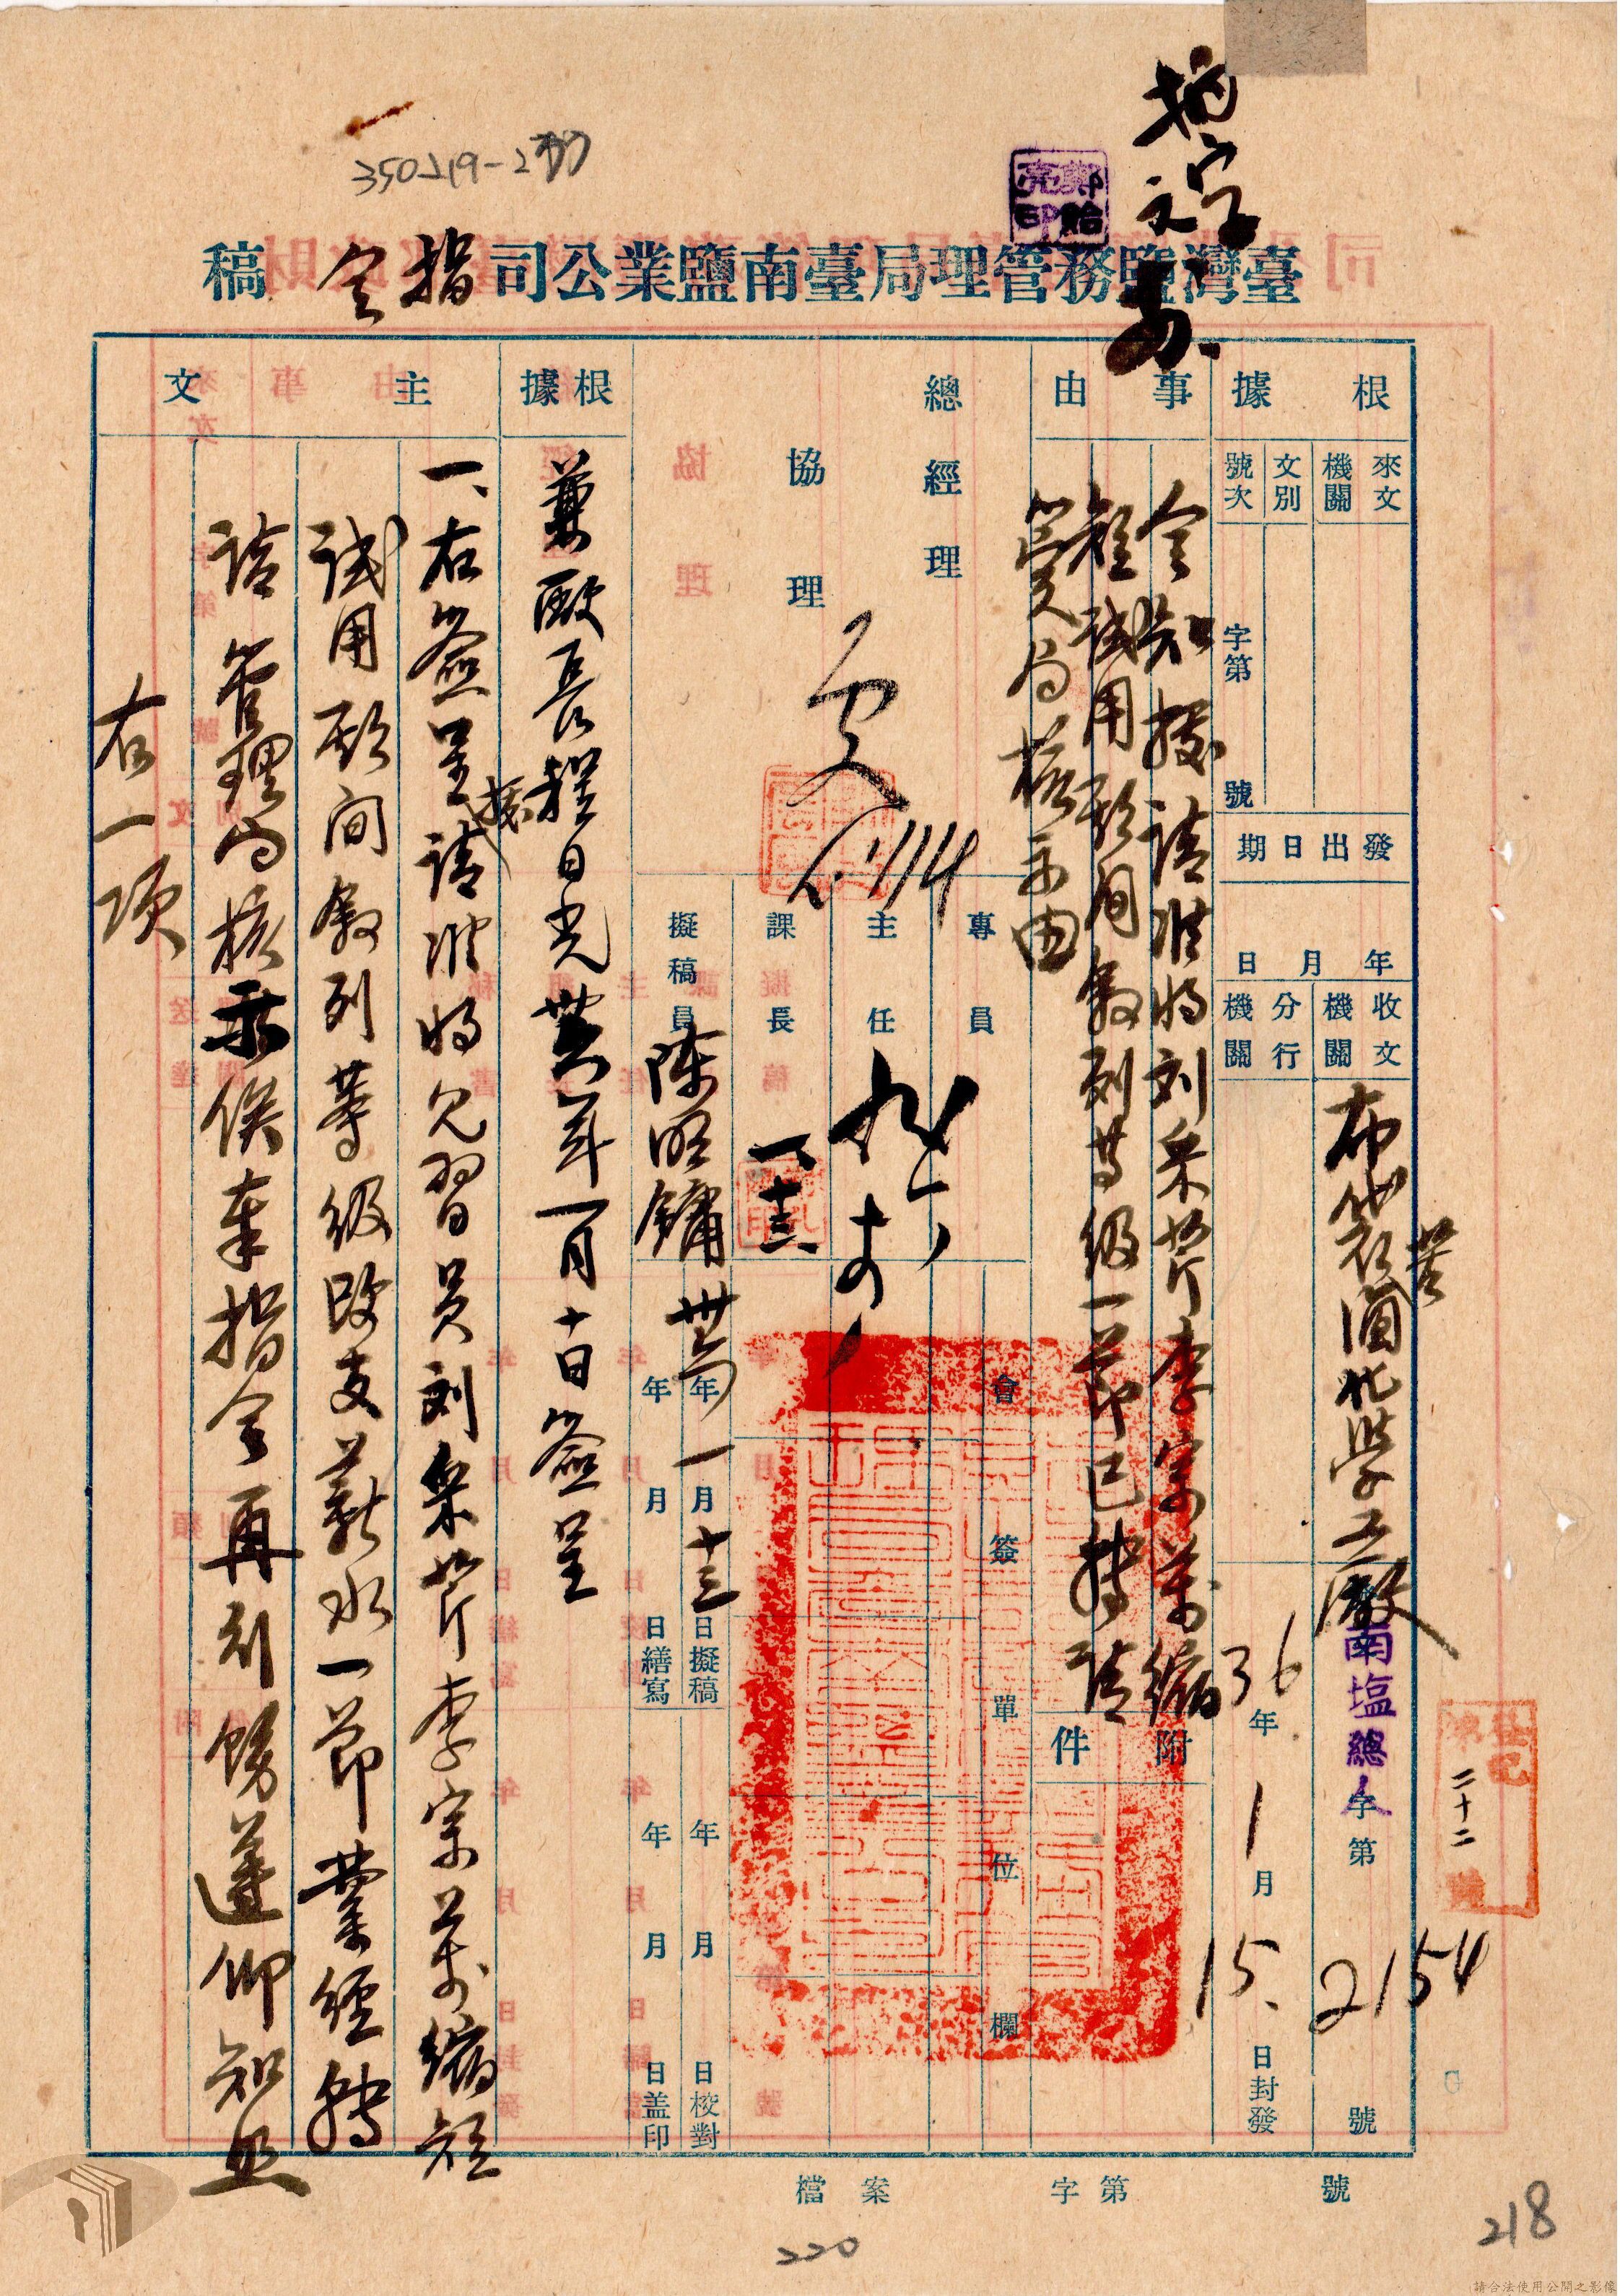 350219-2
臺灣鹽務管理局臺南鹽業公司指令稿
根據
來文機關
文別
號次
字第 號
發出日期
年 月 日
收文機關
分行機關
布袋苦滷化學工廠
南塩總人字第2154號
36年1月15日封發
登記
二十二
事由
令知據請准將刘采芹李宗萬縮
短試用期間敘列等級一節已轉請
管局核示由
附件
總經理
協理
1.1/14
專員
主任
課長
一、十三
擬稿員
陳昭鏞
會簽單位欄
卅六年一月十三日擬稿
年 月 日繕寫
年 月 日校對
年 月 日盖印
根據
兼廠長程日光卅六年一月十日簽呈
主文
一、右簽呈據請准將見習員刘采芹李宗萬縮短
試用期間敘列等級改支薪水一節業經轉
請管理局核示俟奉指令再行飭遵仰知照
右一項
檔案 字第 號
220
218
請合法使用公開之影像